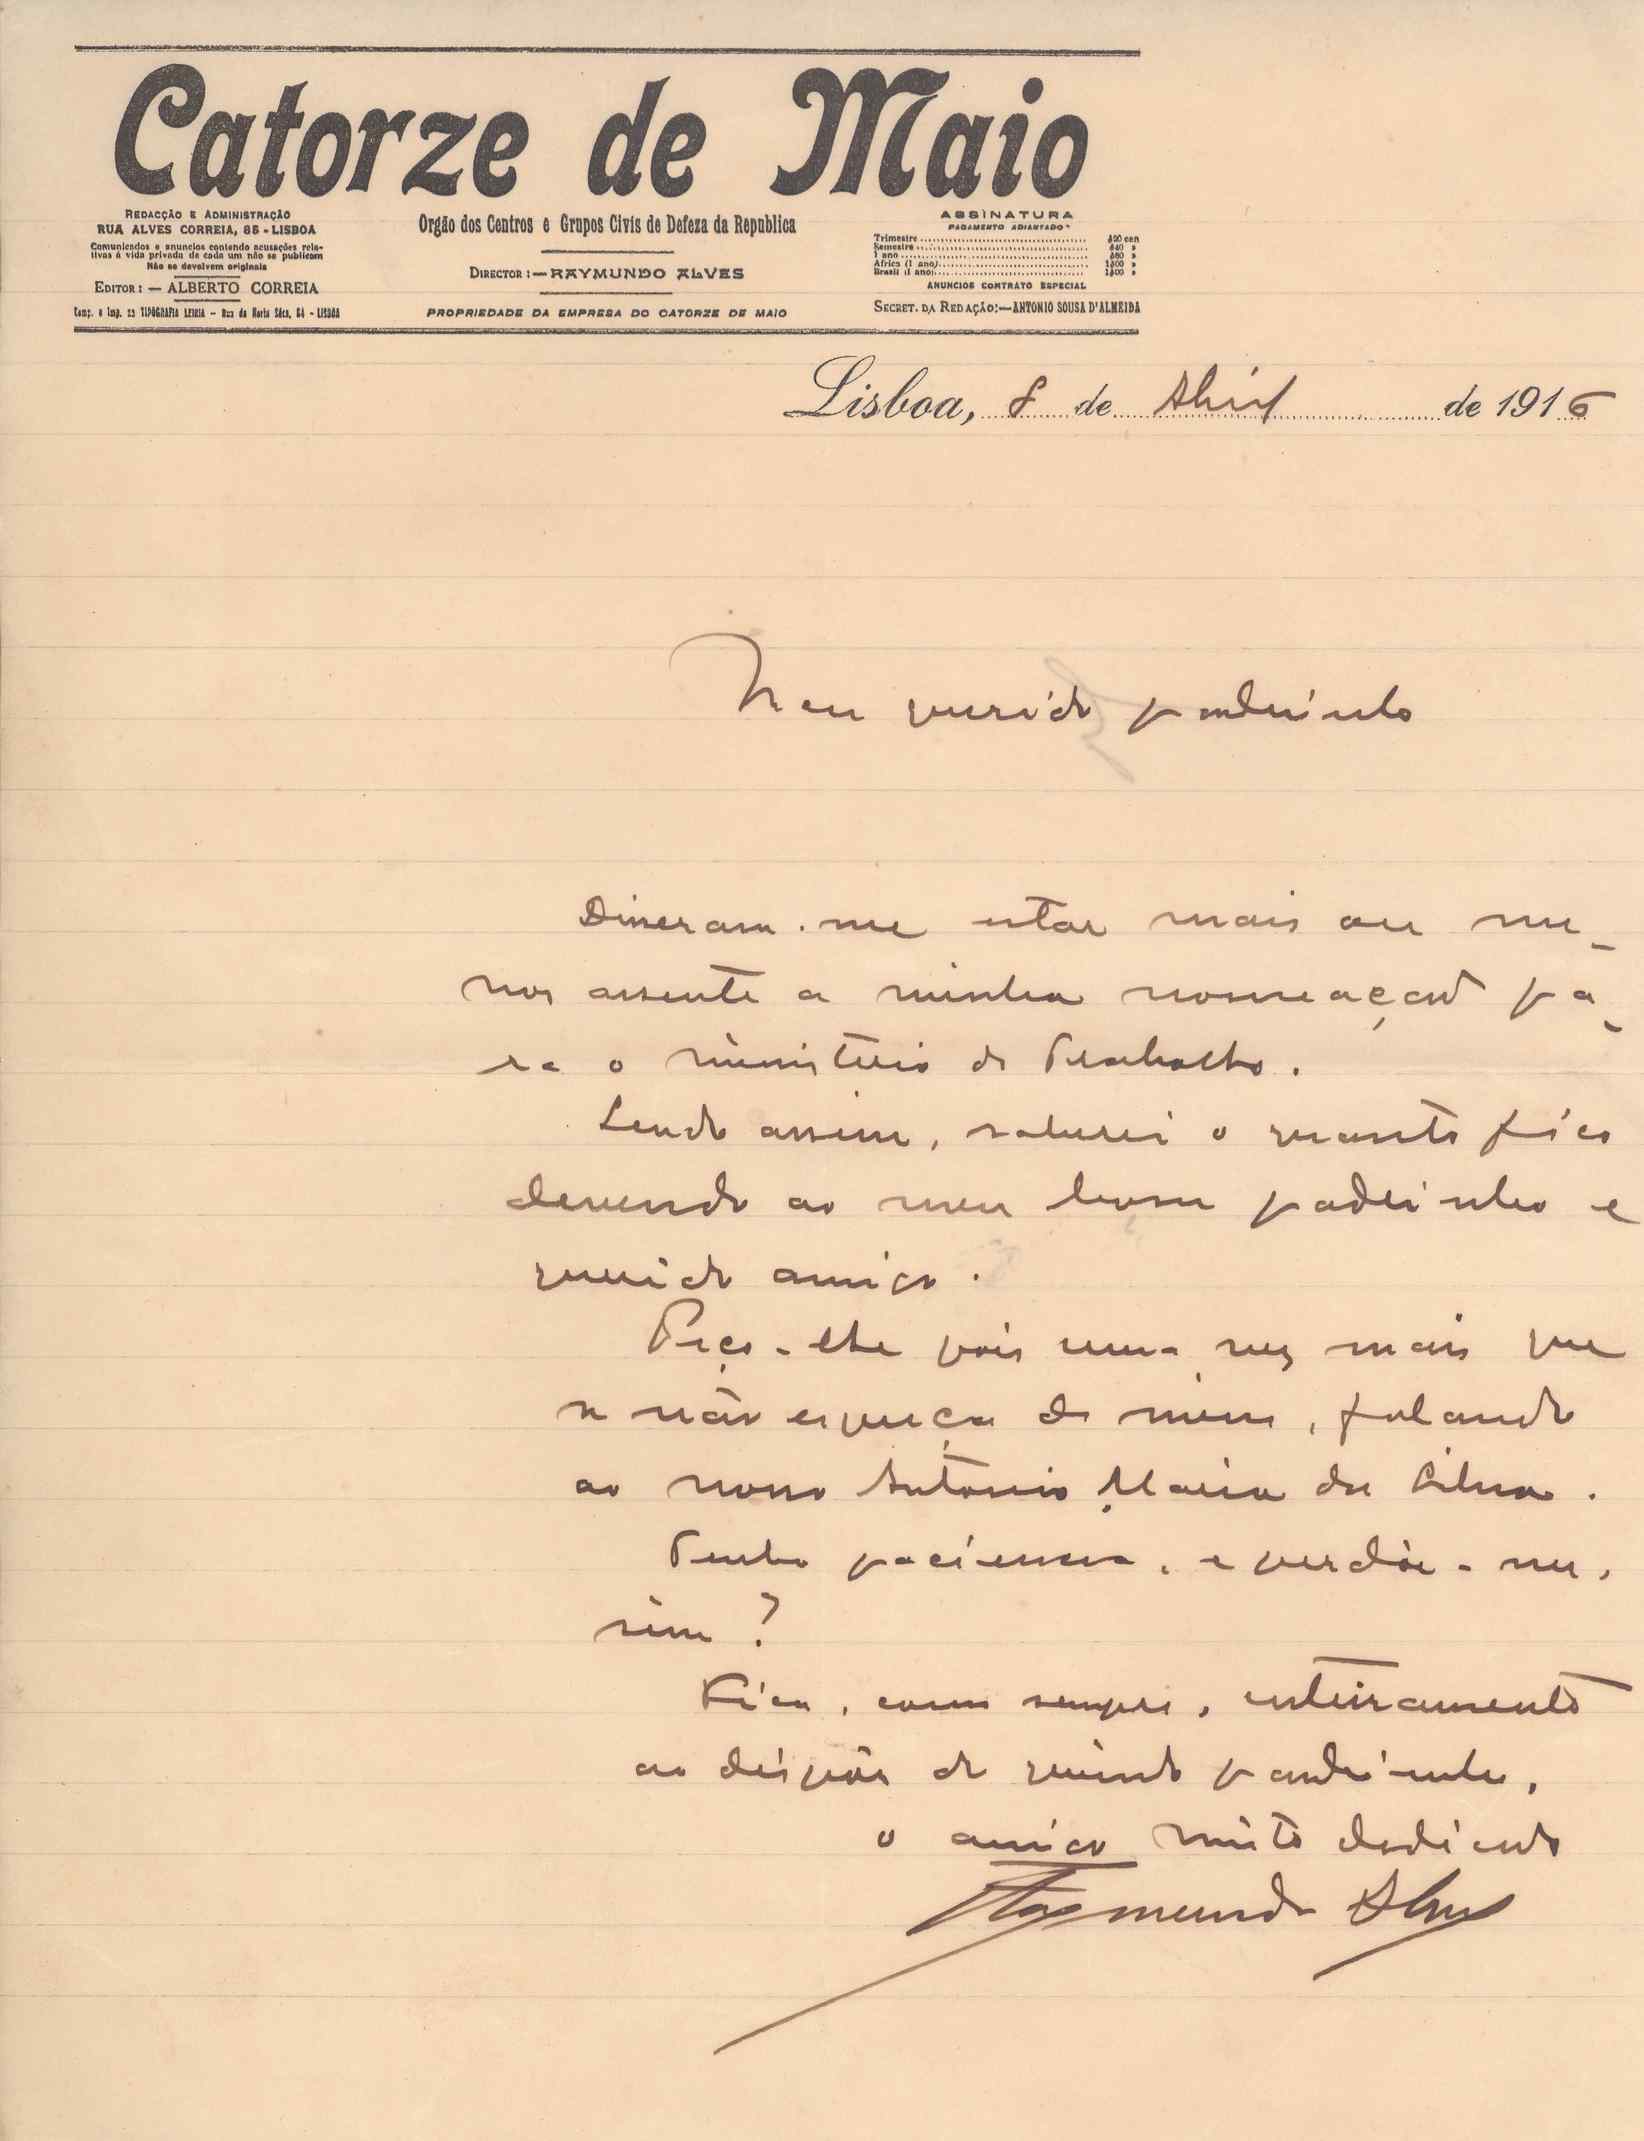 Catorze de Maio
REDACÇÃO E ADMINISTRAÇÃO
RUA ALVES CORREIA, 85 - LISBOA
Comunicados e anuncios contendo acusações rela-
tivas á vida privada de cada um não se publicam
Não se devolvem originais
EDITOR: — ALBERTO CORREIA
Comp. e Imp. na TIPOGRAFIA LEIRIA — Rua da Horta Sêca, 64 - LISBOA
Orgão dos Centros e Grupos Civis de Defeza da Republica
DIRECTOR: — RAYMUNDO ALVES
PROPRIEDADE DA EMPRESA DO CATORZE DE MAIO
ASSINATURA
PAGAMENTO ADIANTADO
Trimestre $20 cen
Semestre $40 »
1 ano $80 »
Africa (1 ano) 1$00 »
Brasil (1 ano) 1$00 »
ANUNCIOS CONTRATO ESPECIAL
SECRET. DA REDAÇÃO: — ANTONIO SOUSA D'ALMEIDA
Lisboa, 8 de Abril de 1916
Meu querido padrinho
Disseram-me estar mais ou me-
nos assente a minha nomeação pa-
ra o ministerio do Trabalho.
Sendo assim, saberei o quanto fico
devendo ao meu bom padrinho e
querido amigo.
Peço-lhe pois uma vez mais que
se não esqueça de mim, falando
ao nosso Antonio Maria da Silva.
Tenha paciencia, e perdôe-me,
sim?
Fica, como sempre, inteiramente
ao dispôr do querido padrinho,
o amigo muito dedicado
Raymundo Alves